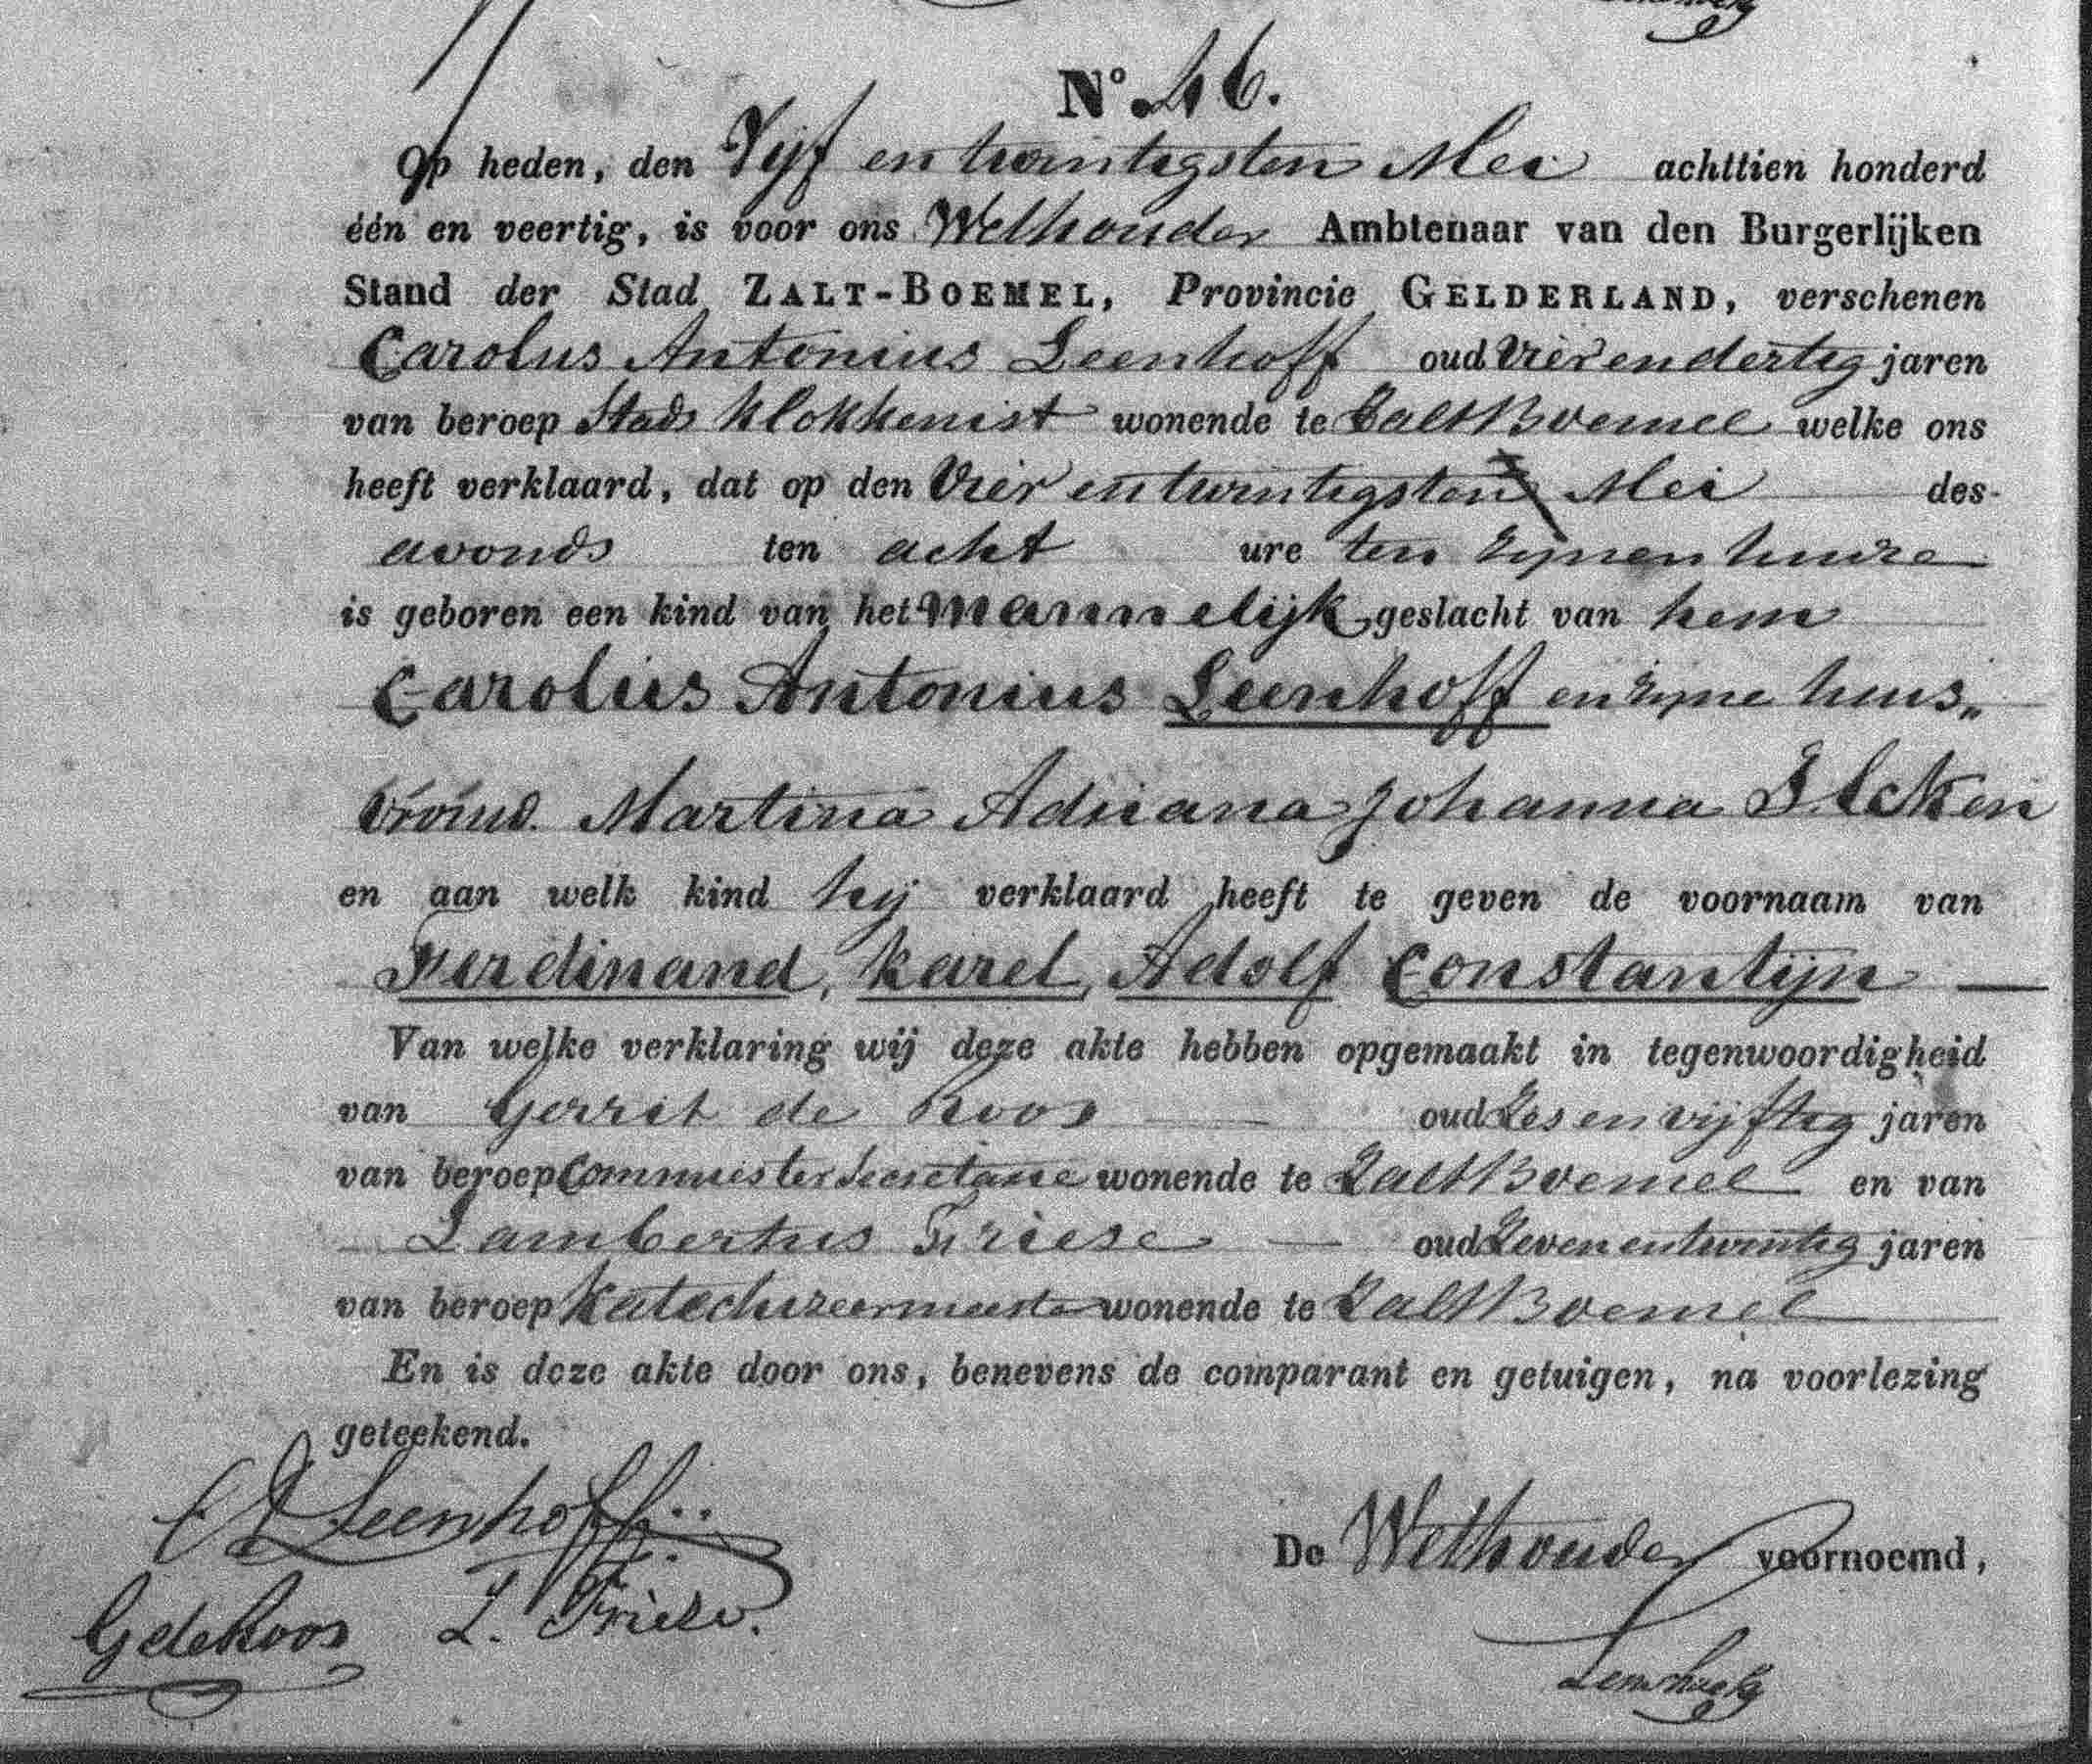 No. 46.
Op heden, den Vijf en twintigsten Mei achttien honderd
één en veertig, is voor ons Wethouder Ambtenaar van den Burgerlijken
Stand der Stad ZALT-BOEMEL, Provincie GELDERLAND, verschenen
Carolus Antonius Leenhoff oud vier en dertig jaren
van beroep Stads klokkenist wonende te ZaltBoemel welke ons
heeft verklaard, dat op den Vier en twintigsten Mei des-
avonds ten acht ure ten zijnen huize
is geboren een kind van het Mannelijk geslacht van hem
Carolus Antonius Leenhoff en zijne huis„
vrouw. Martina Adriana Johanna Ilcken
en aan welk kind hij verklaard heeft te geven de voornaam van
Ferdinand, Karel, Adolf Constantijn —
Van welke verklaring wij deze akte hebben opgemaakt in tegenwoordigheid
van Gerrit de Roos — oud Zes en vijftig jaren
van beroep Commies ter Secretarie wonende te ZaltBoemel en van
Lambertus Friese — oud Zeven en twintig jaren
van beroep Katechizeermeester wonende te ZaltBoemel
En is deze akte door ons, benevens de comparant en getuigen, na voorlezing
geteekend.
CA Leenhoff
De Wethouder voornoemd,
G de Roos L. Friese.